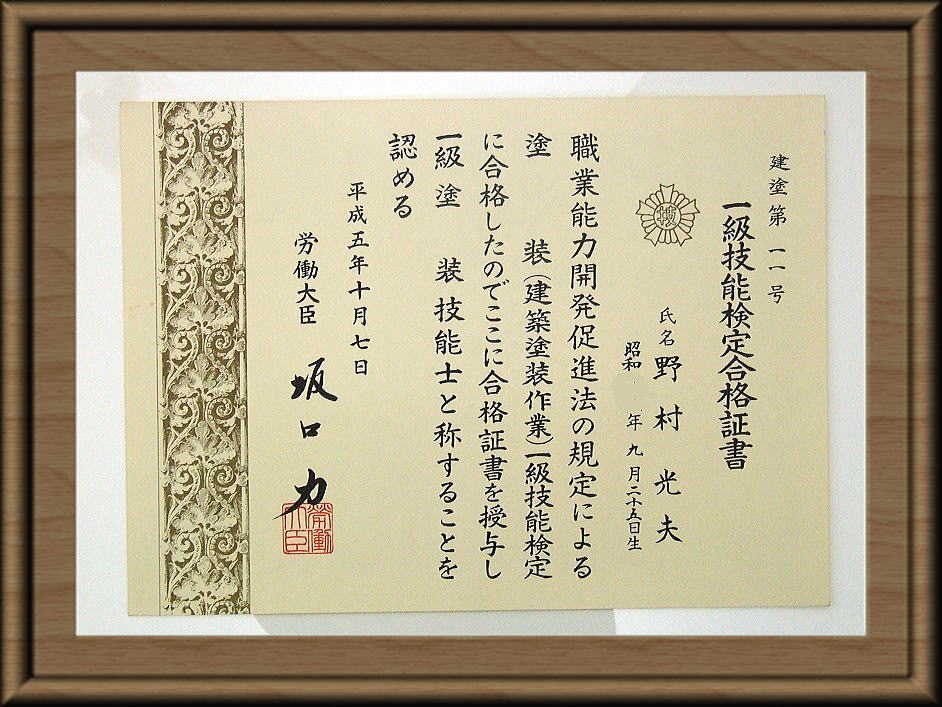 建塗第一一号
一級技能検定合格証書
氏名 野村光夫
昭和 年九月二十五日生
職業能力開発促進法の規定による
塗 装(建築塗装作業)一級技能検定
に合格したのでここに合格証書を授与し
一級 塗 装技能士と称することを
認める
平成五年十月七日
労働大臣 坂口力
労働
大臣